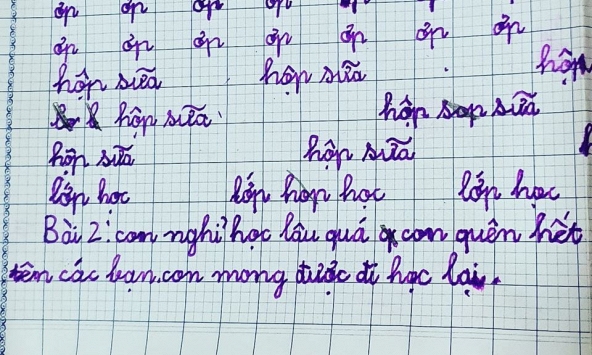 ơp ơp ơp ơp
ơp ơp ơp ơp ơp ơp ơp
hộp sữa hộp sữa hộp
hộp sữa hộp sữa
hộp sữa hộp sữa
lớp học lớp họp học lớp học
Bài 2: con nghỉ học lâu quá con quên hết
tên các bạn. con mong được đi học lại.